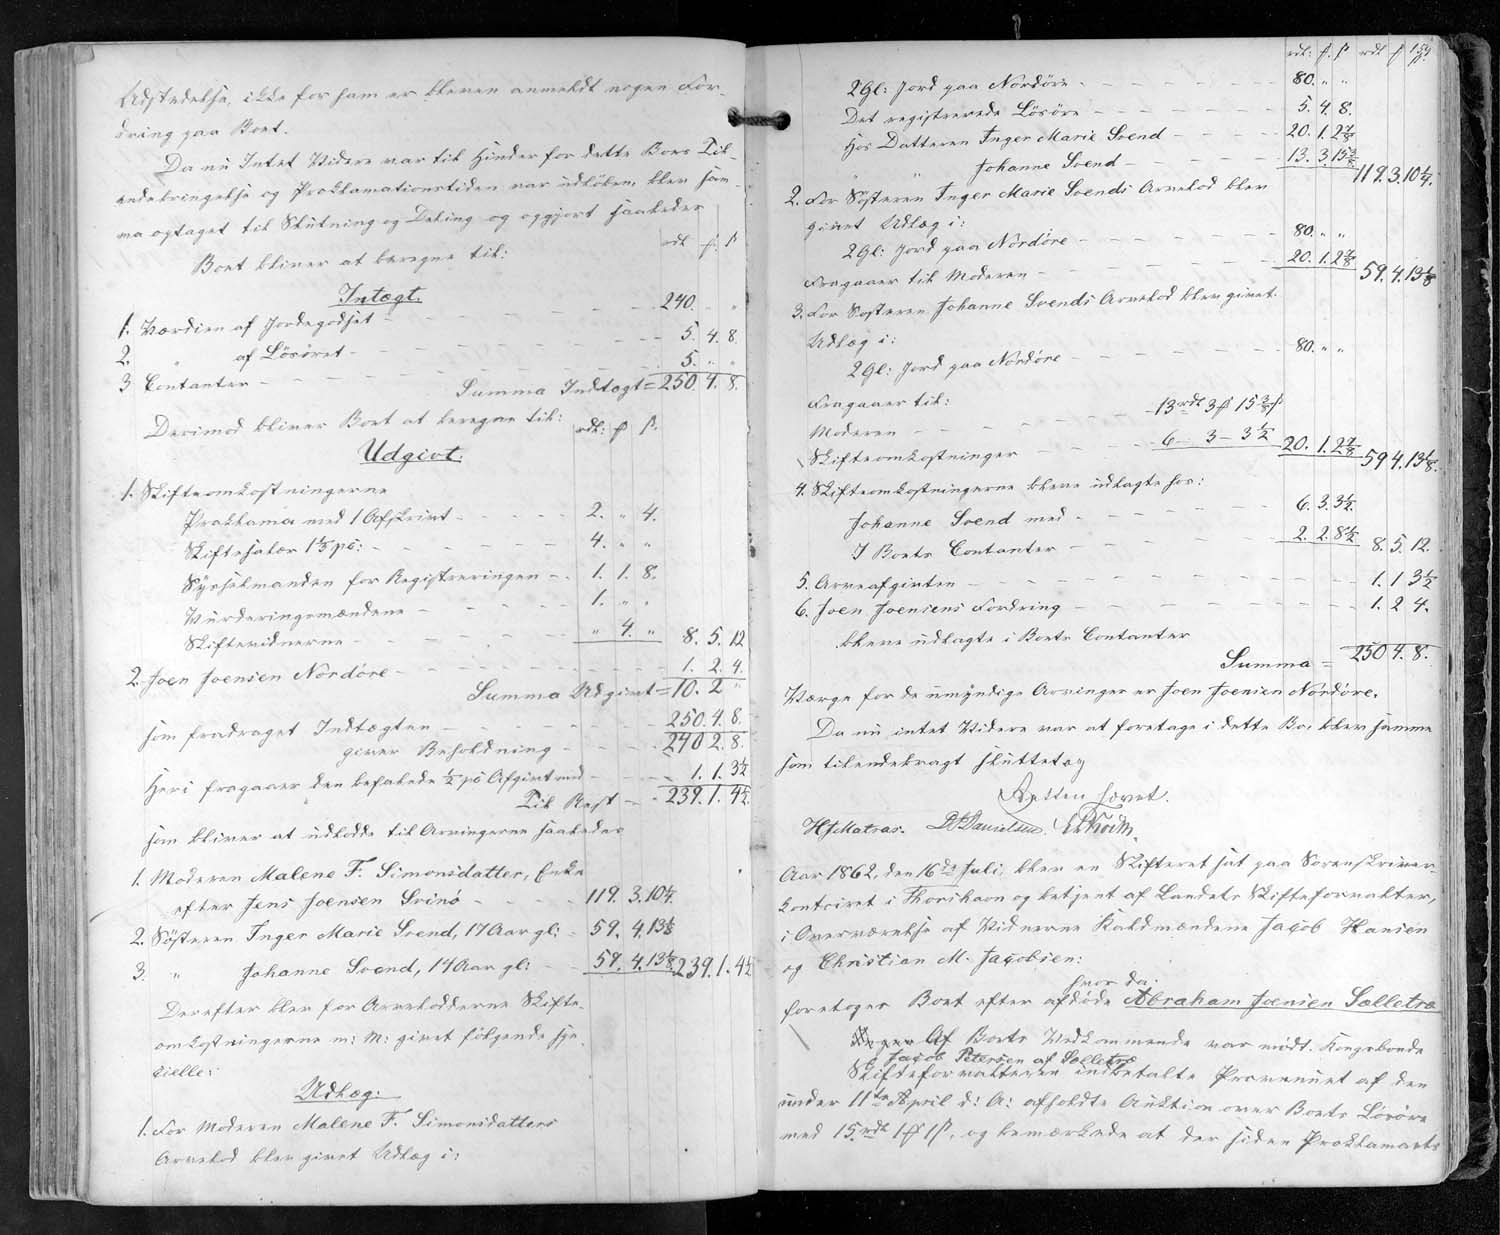 Udstedelse, ikke for ham er bleven anmeldt nogen For-
dring paa Boet.
Da nu Intet Videre var til Hinder for dette Boes Til-
endebringelse og Proklamationstiden var udløben, blev sam-
ma optaget til Slutning og Deling og opgjort saaledes
rdl. ℳ. ß
Boet bliver at beregne til:
Intægt.
1. Værdien af Jordegodset - 240. " "
2. " af Lösöret - 5. 4. 8.
3 Contanter - 5. " "
Summa Indtægt = 250. 4. 8.
Derimod bliver Boet at beregne til: rdl: ℳ ß.
Udgivt.
1. Skifteomkostningerne
Proklama med 1 Afskrivt - 2. " 4.
Skiftesalær 1⅔ pc: - 4. " "
Sysselmanden for Registreringen - 1. 1. 8.
Vurderingsmændene - 1. " "
Skiftevidnerne - " 4. " 8. 5. 12
2. Joen Joensen Nordöre - 1. 2. 4.
Summa Udgivt = 10. 2 "
som fradraget Indtægten - 250. 4. 8.
giver Beholdning - 240 2. 8.
Heri fragaaer den befalede ½ pc Afgivt med - 1. 1. 3½
Til Rest - 239. 1. 4½
som bliver at udlodde til Arvingerne saaledes
1. Moderen Malene F. Simonsdatter, Enke
efter Jens Joensen Svinö - 119. 3. 10¼.
2. Sösteren Inger Marie Svend, 17 Aar gl: - 59. 4. 13⅛
3. " Johanne Svend, 14 Aar gl: - 59. 4. 13⅛ 239. 1. 4½
Derefter blev for Arvelodderne Skifte-
omkostningerne m: M: givet følgende spe-
cielle:
Udlæg:
1. For Moderen Malene F. Simonsdatters
Arvelod blev givet Udlæg i:
rdl: ℳ. ß rdl ℳ ß 154
2 Gl: Jord paa Nordöre - 80. " "
Det registrerede Lösöre - 5. 4. 8.
Hos Datteren Inger Marie Svend - 20. 1. 2⅞
" " Johanne Svend - 13. 3. 15⅜ 119. 3. 10¼.
2. For Sösteren Inger Marie Svends Arvelod blev
givet Udlæg i:
2 Gl: Jord paa Nordöre - 80. " "
Fragaaer til Moderen - 20. 1. 2⅞ 59. 4. 13⅛
3. For Søsteren Johanne Svends Arvelod blev givet
Udlæg i:
2 Gl: Jord paa Nordöre - 80. " "
Fragaaer til:
Moderen - 13 rdl 3 ℳ 15⅜ ß
Skifteomkostninger - 6 - 3 - 3½ 20. 1. 2⅞ 59 4. 13⅛.
4. Skifteomkostningerne bleve udlagte hos:
Johanne Svend med - 6. 3. 3½.
I Boets Contanter - 2. 2. 8½ 8. 5. 12.
5. Arveafgivten - 1. 1 3½
6. Joen Joensens Fordring - 1. 2 4.
bleve udlagte i Boets Contanter
Summa = 250 4. 8.
Værge for de umyndige Arvinger er Joen Joensen Nordöre.
Da nu intet Videre var at foretage i dette Bo, blev samme
som tilendebragt sluttet og
Retten hævet.
HJMatras. D. Danielsen.
Aar 1862, den 16de Juli, blev en Skifteret sat paa Sorenskriver-
kontoiret i Thorshavn og betjent af Landets Skifteforvalter,
i Overværelse af Vidnerne Kaldmændene Jacob Hansen
og Christian M. Jacobsen:
hvor da:
foretoges Boet efter afdøde Abraham Joensen Sælletræ
Af Boets Vedkommende var mødt. Kongsbonde
Jacob Petersen af Sælletræ
Skifteforvalteren indbetalte Provenuet af den
under 11te April d: A: afholdte Auktion over Boets Lösöre
med 15 rdl 1 ℳ 1 ß, og bemærkede at der siden Proklamaets